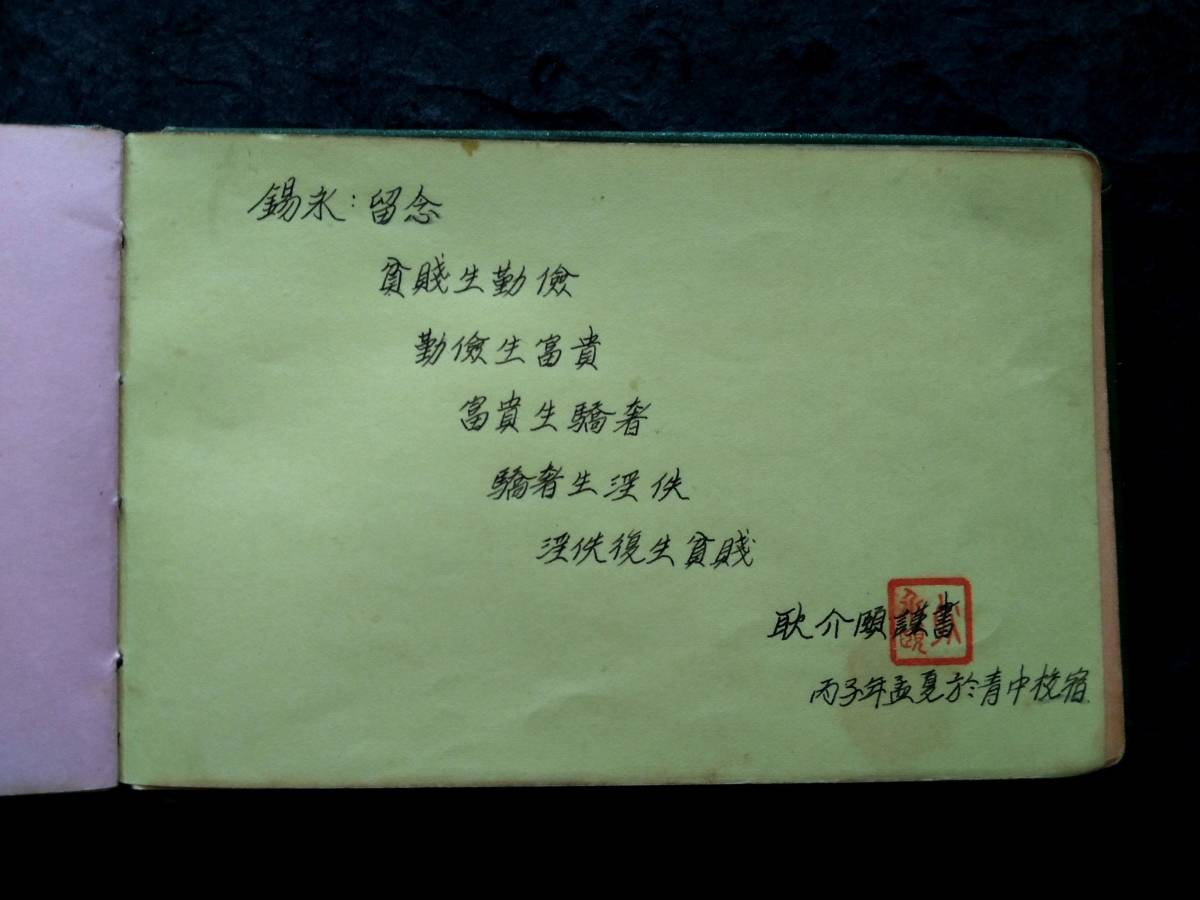 錫永：留念
貧賤生勤儉
勤儉生富貴
富貴生驕奢
驕奢生淫佚
淫佚復生貧賤
耿介頤謹書
丙子年孟夏於青中校宿